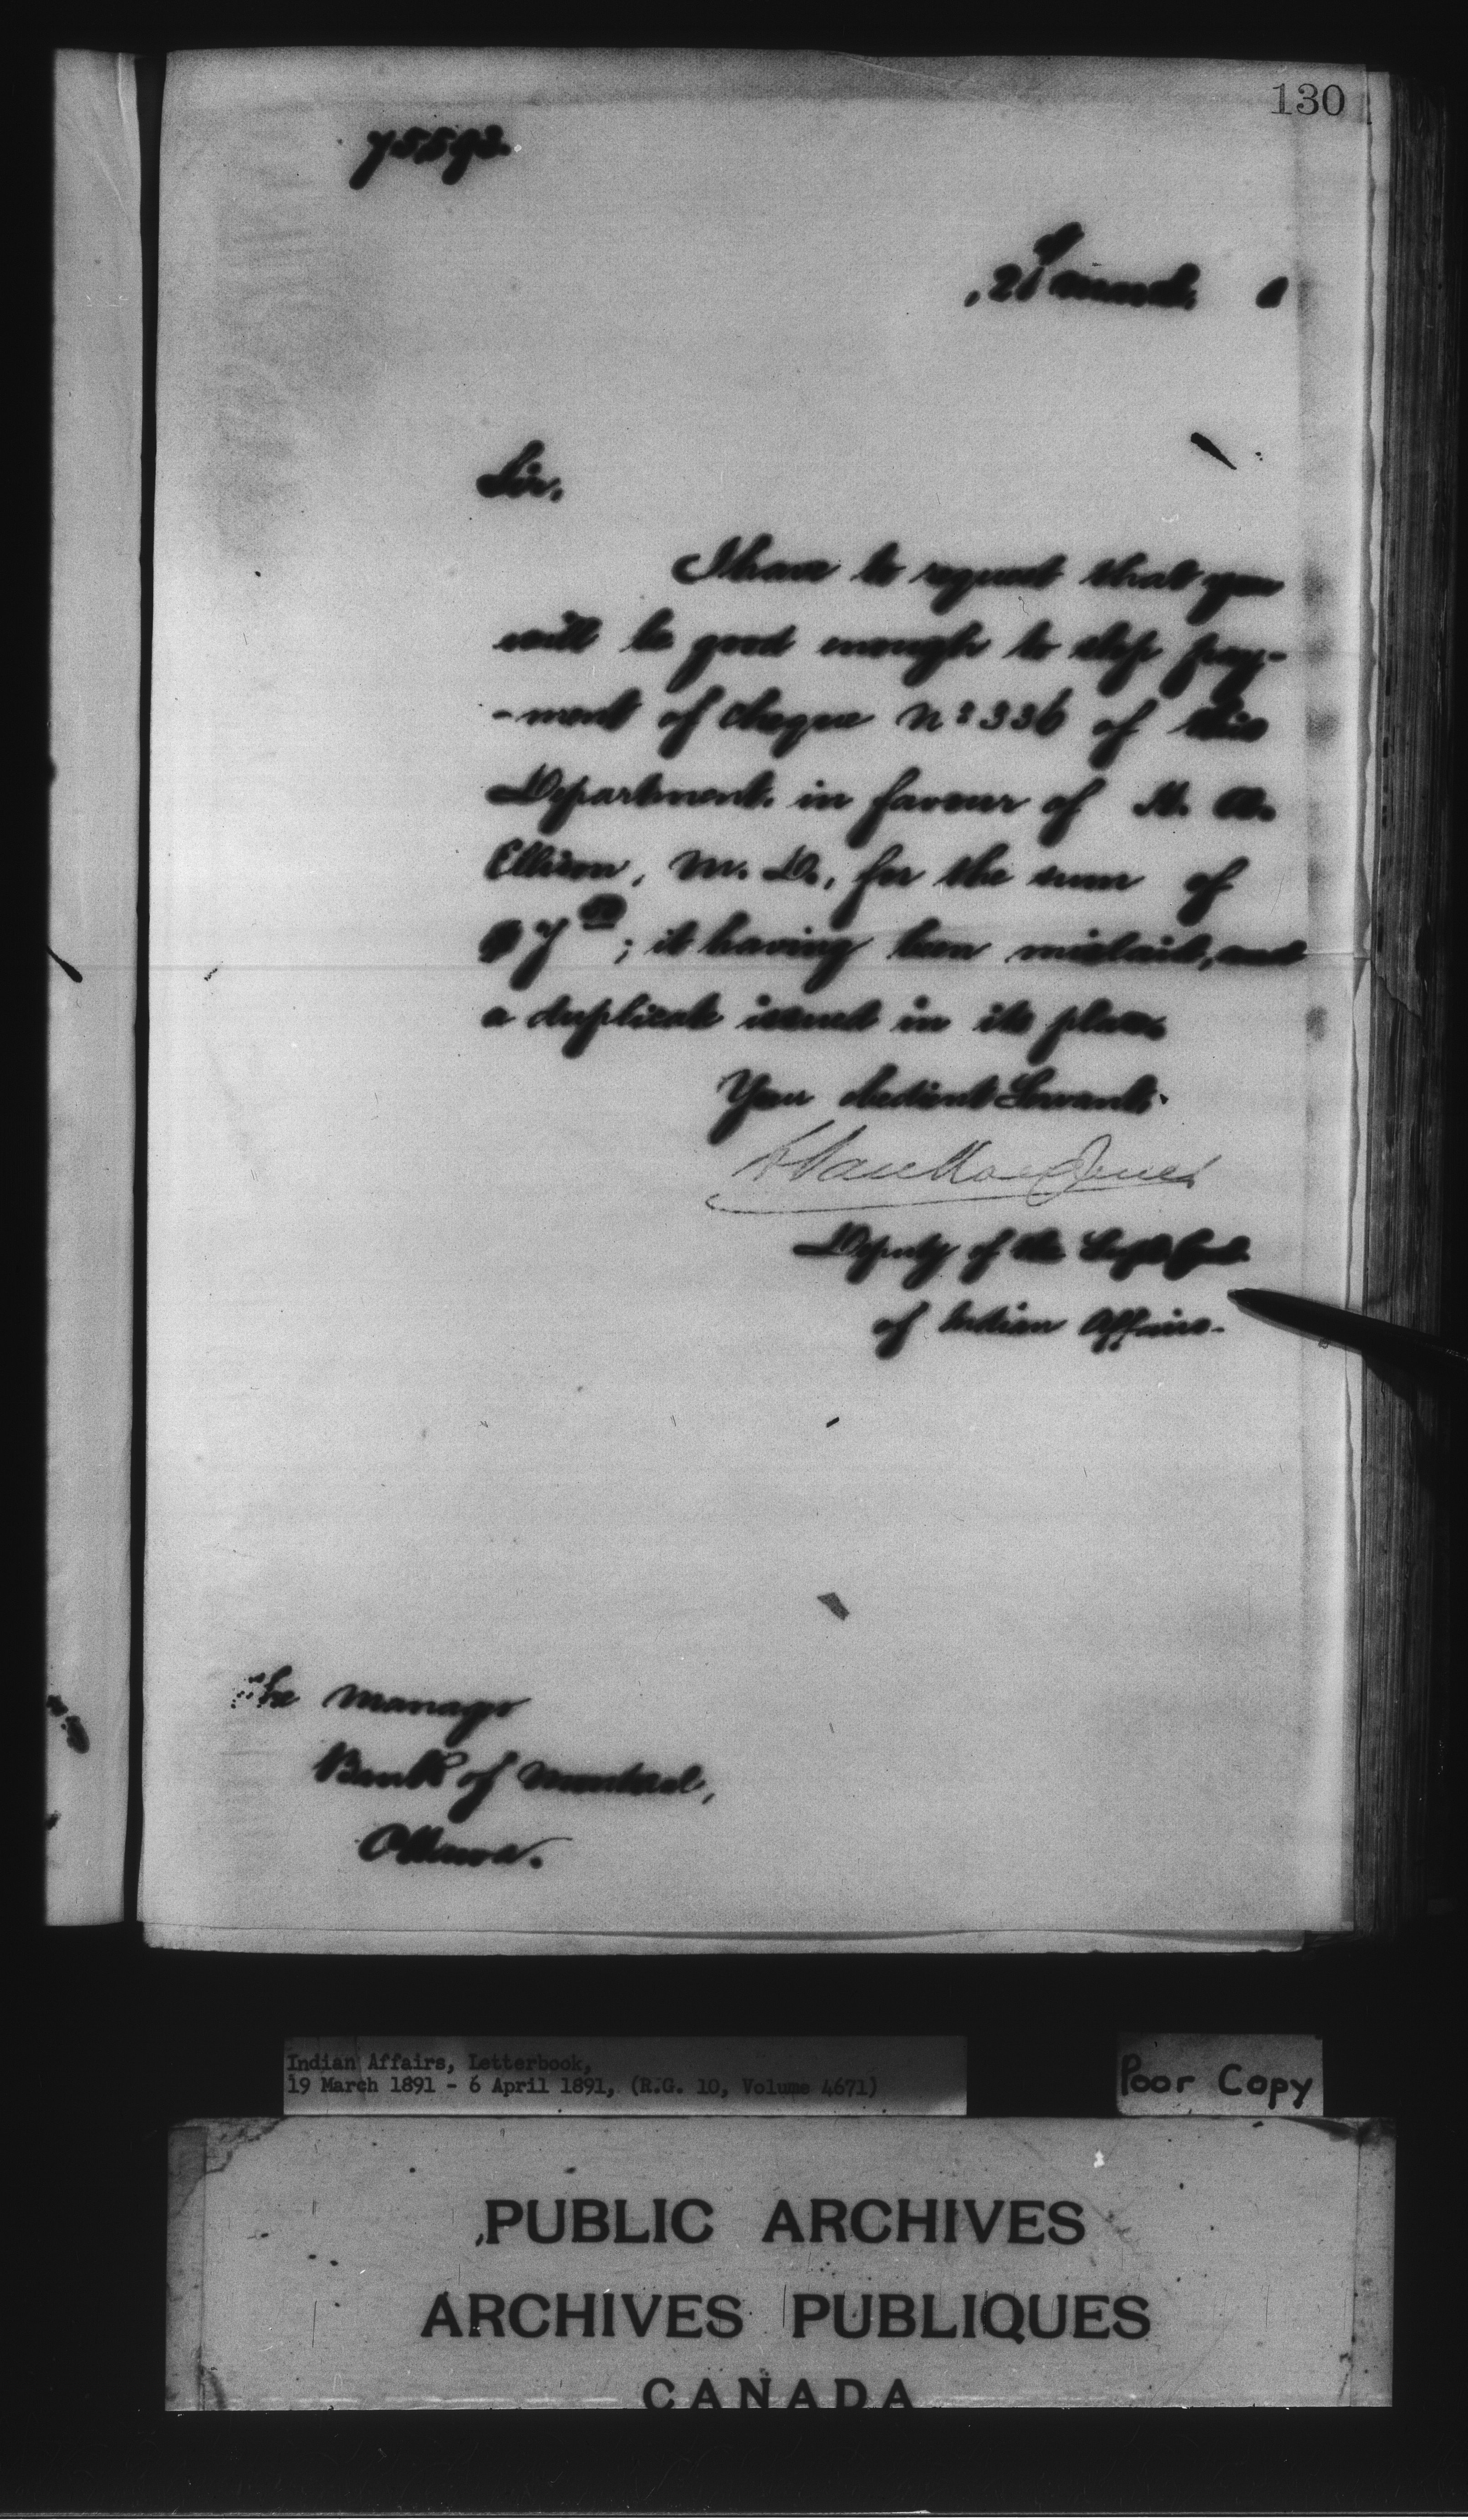 130
75593.
, 21st March 1
Sir,
I have to request that you
will be good enough to stop pay-
-ment of cheque No 336 of this
Department, in favour of
Ellison, M. D., for the sum of
$7 00; it having been mislaid, and
a duplicate issued in its place.
Your obedient Servant.
L Vankoughnet
Deputy of the Supt Genl.
of Indian Affairs.
The Manager
Bank of Montreal,
Ottawa.
Indian Affairs, Letterbook,
19 March 1891 - 6 April 1891, (R.G. 10, Volume 4671)
Poor Copy
PUBLIC ARCHIVES
ARCHIVES PUBLIQUES
CANADA